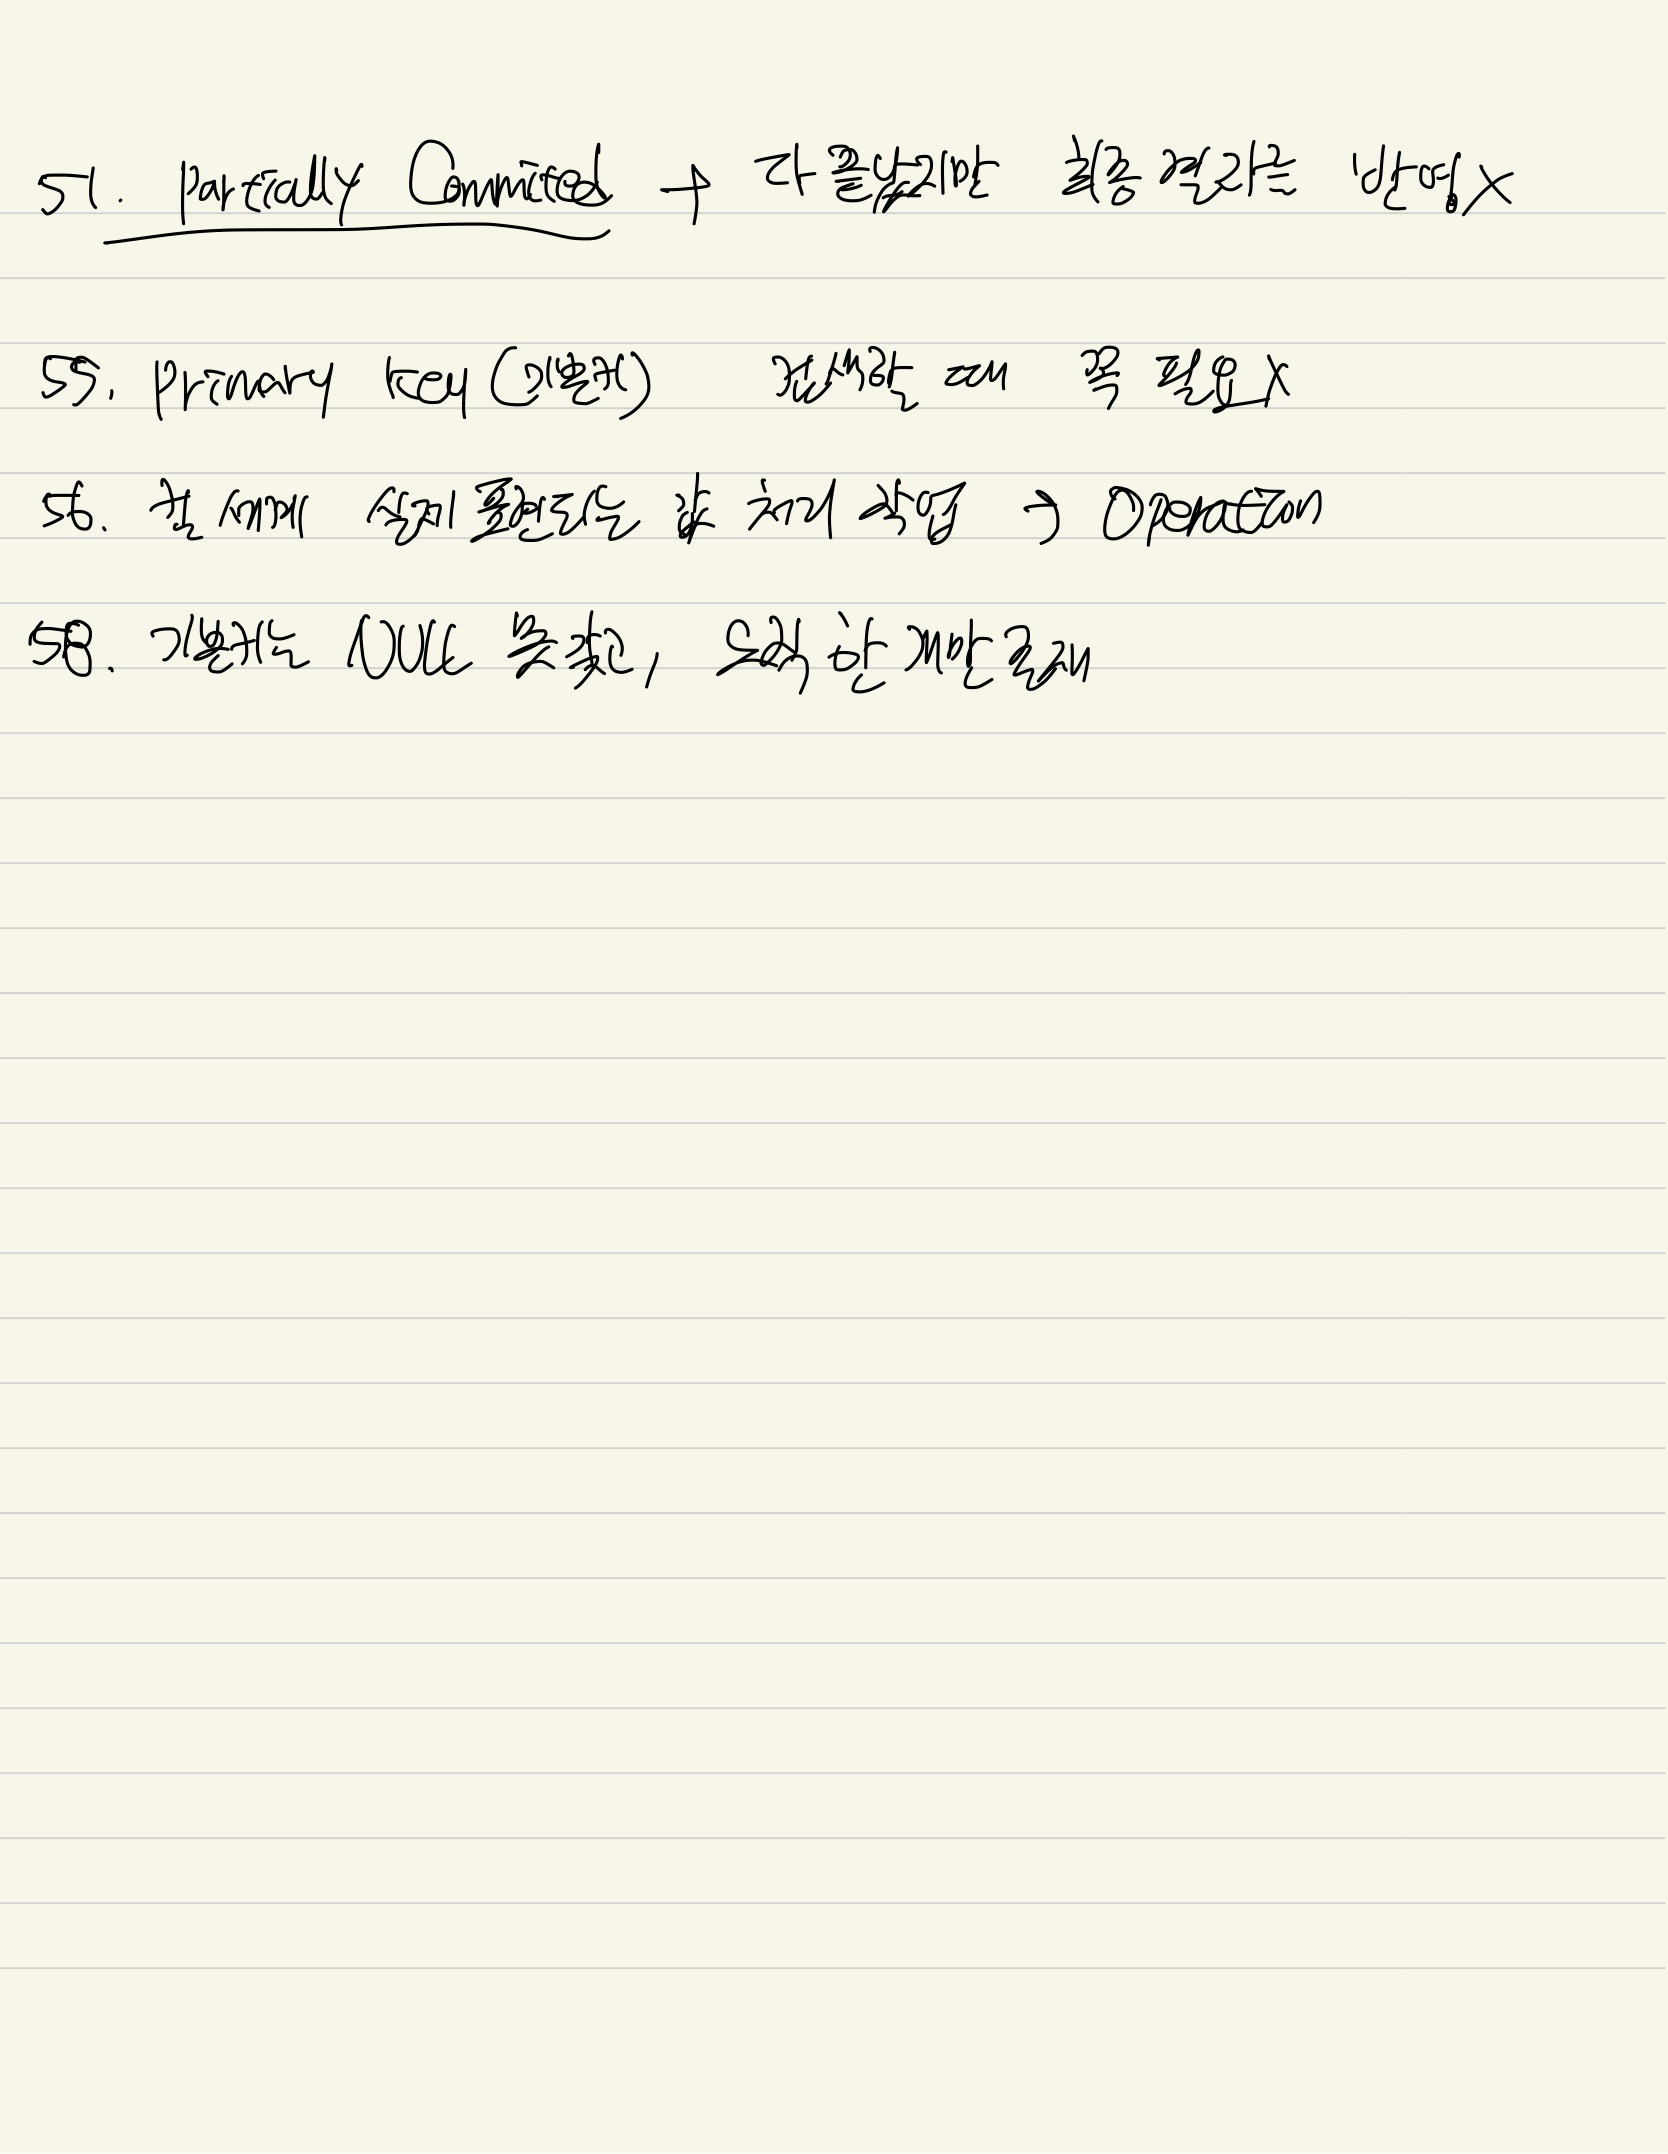 51. Partially Commited → 다 끝났지만 최종 결과는 반영X
55. Primary key(기본키) 검색할 때 꼭 필요X
56. 현 세계 실제 표현되는 값 처리 작업 → Operation
58. 기본키는 NULL 못 갖고, 오직 한 개만 존재